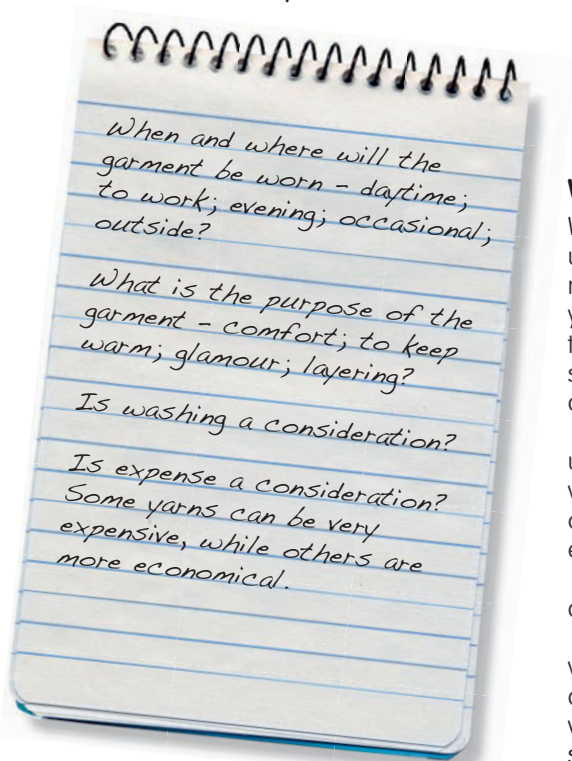 When and where will the
garment be worn – daytime;
to work; evening; occasional;
outside?
What is the purpose of the
garment – comfort; to keep
warm; glamour; layering?
Is washing a consideration?
Is expense a consideration?
Some yarns can be very
expensive, while others are
more economical.